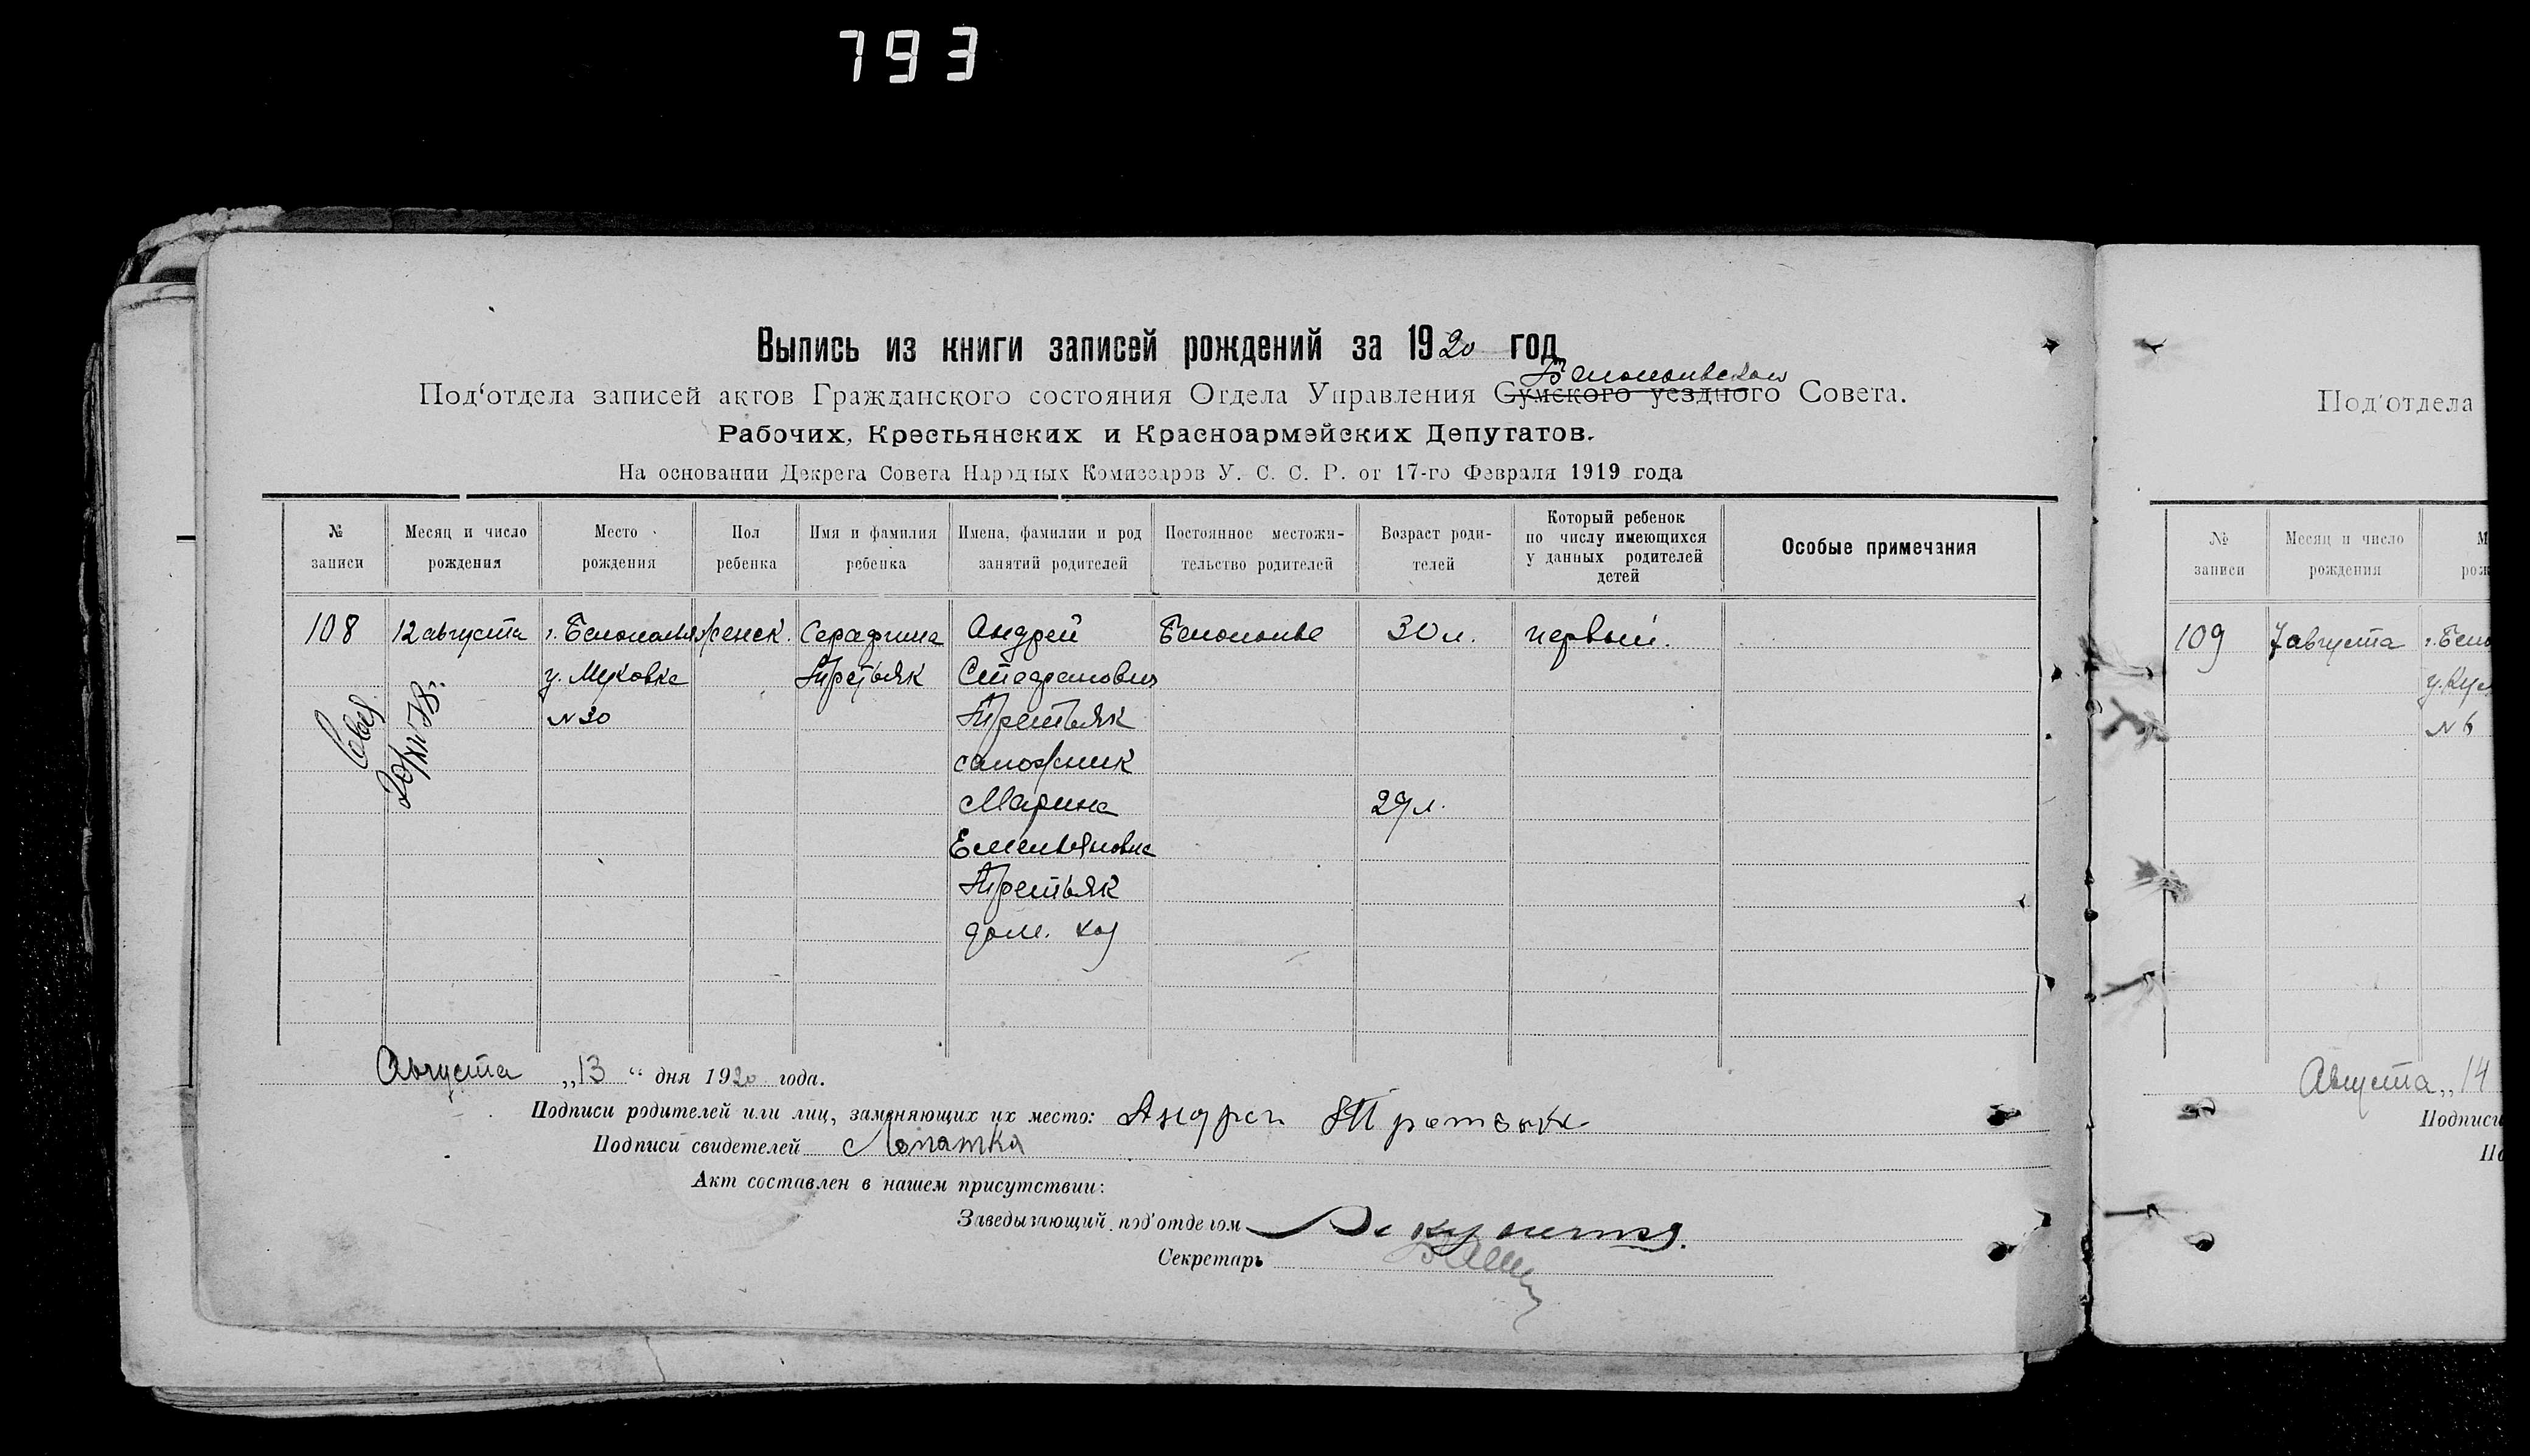 793
Выпись из книги записей рождений за 1920 год
Белопольского
Под‘отдела записей актов Гражданского состояния Отдела Управления Сумского уездного Совета.
Рабочих, Крестьянских и Красноармейских Депутатов.
На основании Декрета Совета Народных Комиссаров У. С. С. Р. от 17-го Февраля 1919 года
№ записи
Месяц и число рождения
Место рождения
Пол ребенка
Имя и фамилия ребенка
Имена, фамилии и род занятий родителей
Постоянное местожительство родителей
Возраст родителей
Который ребенок по числу имеющихся у данных родителей детей
Особые примечания
108 12 августа г. Белополья женск. Серафима Андрей Белополье 30 л. первый.
у. Муховка Третьяк Стефанович
№ 30 Третьяк
сапожник
Марина 29 л.
Емельяновна
Третьяк
дом. хоз
Августа „13“ дня 1920 года.
Подписи родителей или лиц, заменяющих их место: Андрей Третьяк
Подписи свидетелей Лопатка
Акт составлен в нашем присутствии:
Заведывающий под‘отделом
Секретарь
Под‘отдела
№ записи
Месяц и число рождения
109 7 августа г. Бело
№ 6
Августа „14
Подписи